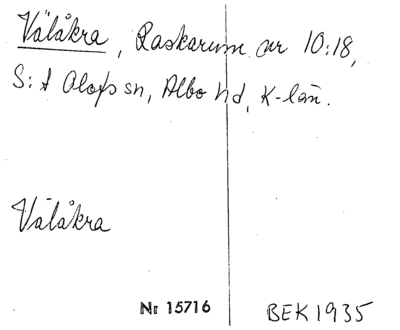 Välåkra, Raskarum ar 10:18,
S:t Olofs sn, Albo hd, K-län.
Välåkra
Nr 15716
BEK 1935